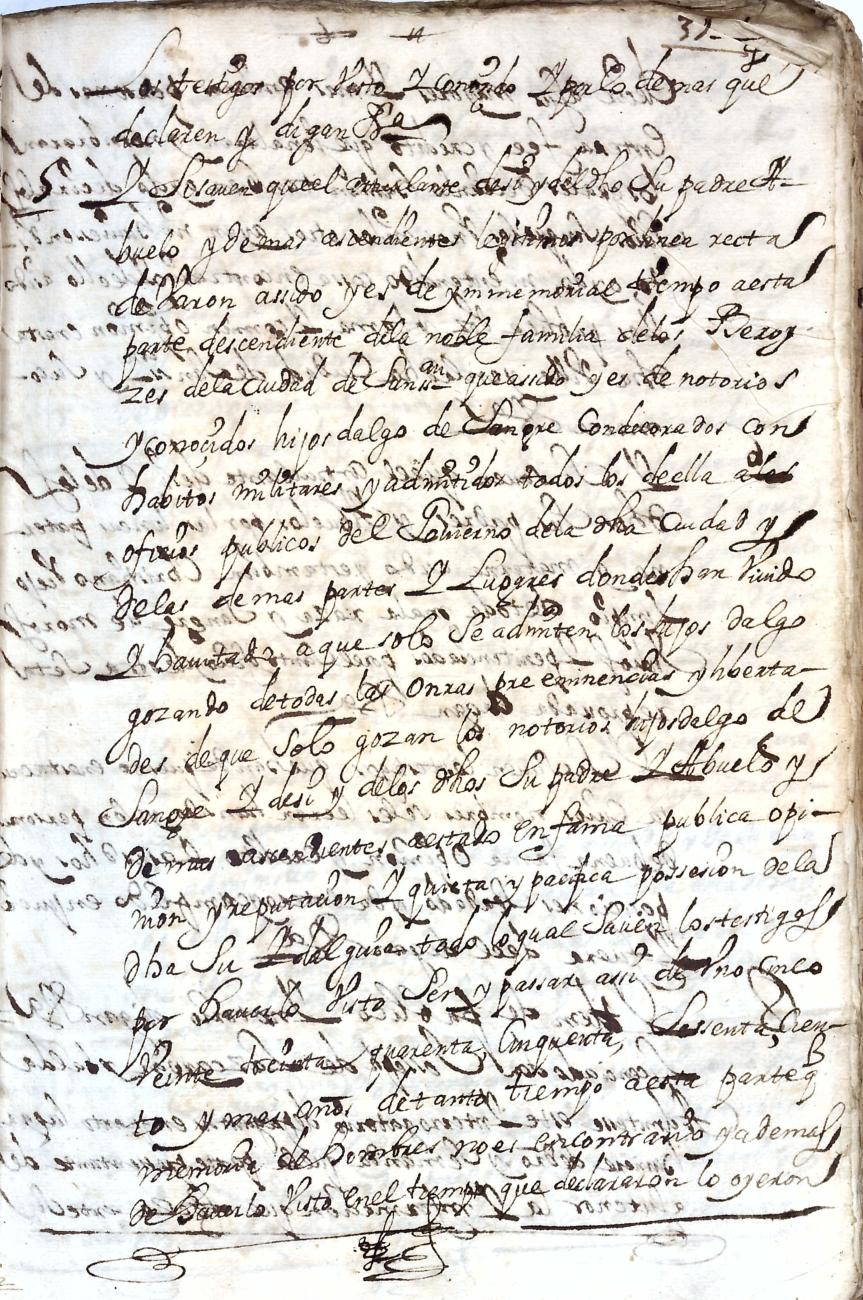 31-
Los testigos por Visto Y conocido Y por lo demas que
declaren y digan Va
5 Y Sisaven que el articulante de si y del dho Su padre A-
buelo y demas ascendientes lexitimos por linea recta
de Varon assido y es de ymmemorial tiempo aesta
parte descendiente dela noble familia delos Beroy-
zes dela Ciudad de Sanss.an que assido y es de notorios
y conoçidos hijos dalgo de Sangre Condecorados con
habitos militares y admitidos todos los de ella a los
ofiçios publicos del Govierno dela dha Ciudad y
delas demas partes Y Lugares donde han Vivido
Y havitado aque solo Se admiten los hijos dalgo
gozando de todas las Onras preeminencias y liberta-
des de que Solo gozan los notorios hijosdalgo de
Sangre Y de si y delos dhos Su padre Y Abuelo y
demas ascendientes aestado en fama publica opi-
nion y reputacion Y quieta y pacifica possesion dela
dha Su Ydalguia todo loqual Saven los testigos
por haverlo Visto Ser y passar assi de Uno Cinco
Veinte treinta quarenta, Cinquenta, Sessenta, Cien-
to y mas años de tanto tiempo aesta parte q
memoria de hombres no es en contrario y ademas
de haverlo Visto en el tiempo que declararon lo oyeron